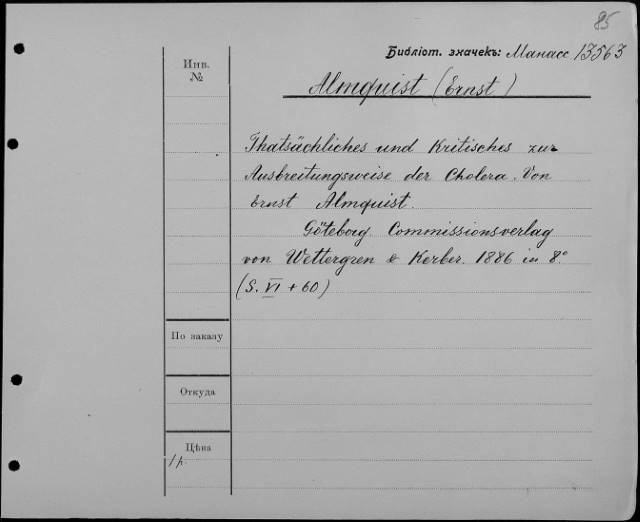 85
Библіот. значекъ: Манасс 13563
Инв.
№
Almquist (Ernst)
Thatsächliches und Kritisches zur
Ausbreitungsweise der Cholera. Von
Ernst Almquist.
Göteborg. Commissionsverlag
von Wettergren & Kerber. 1886 in 8.°
(S. VI + 60)
По заказу
Откуда
Цѣна
1 р.